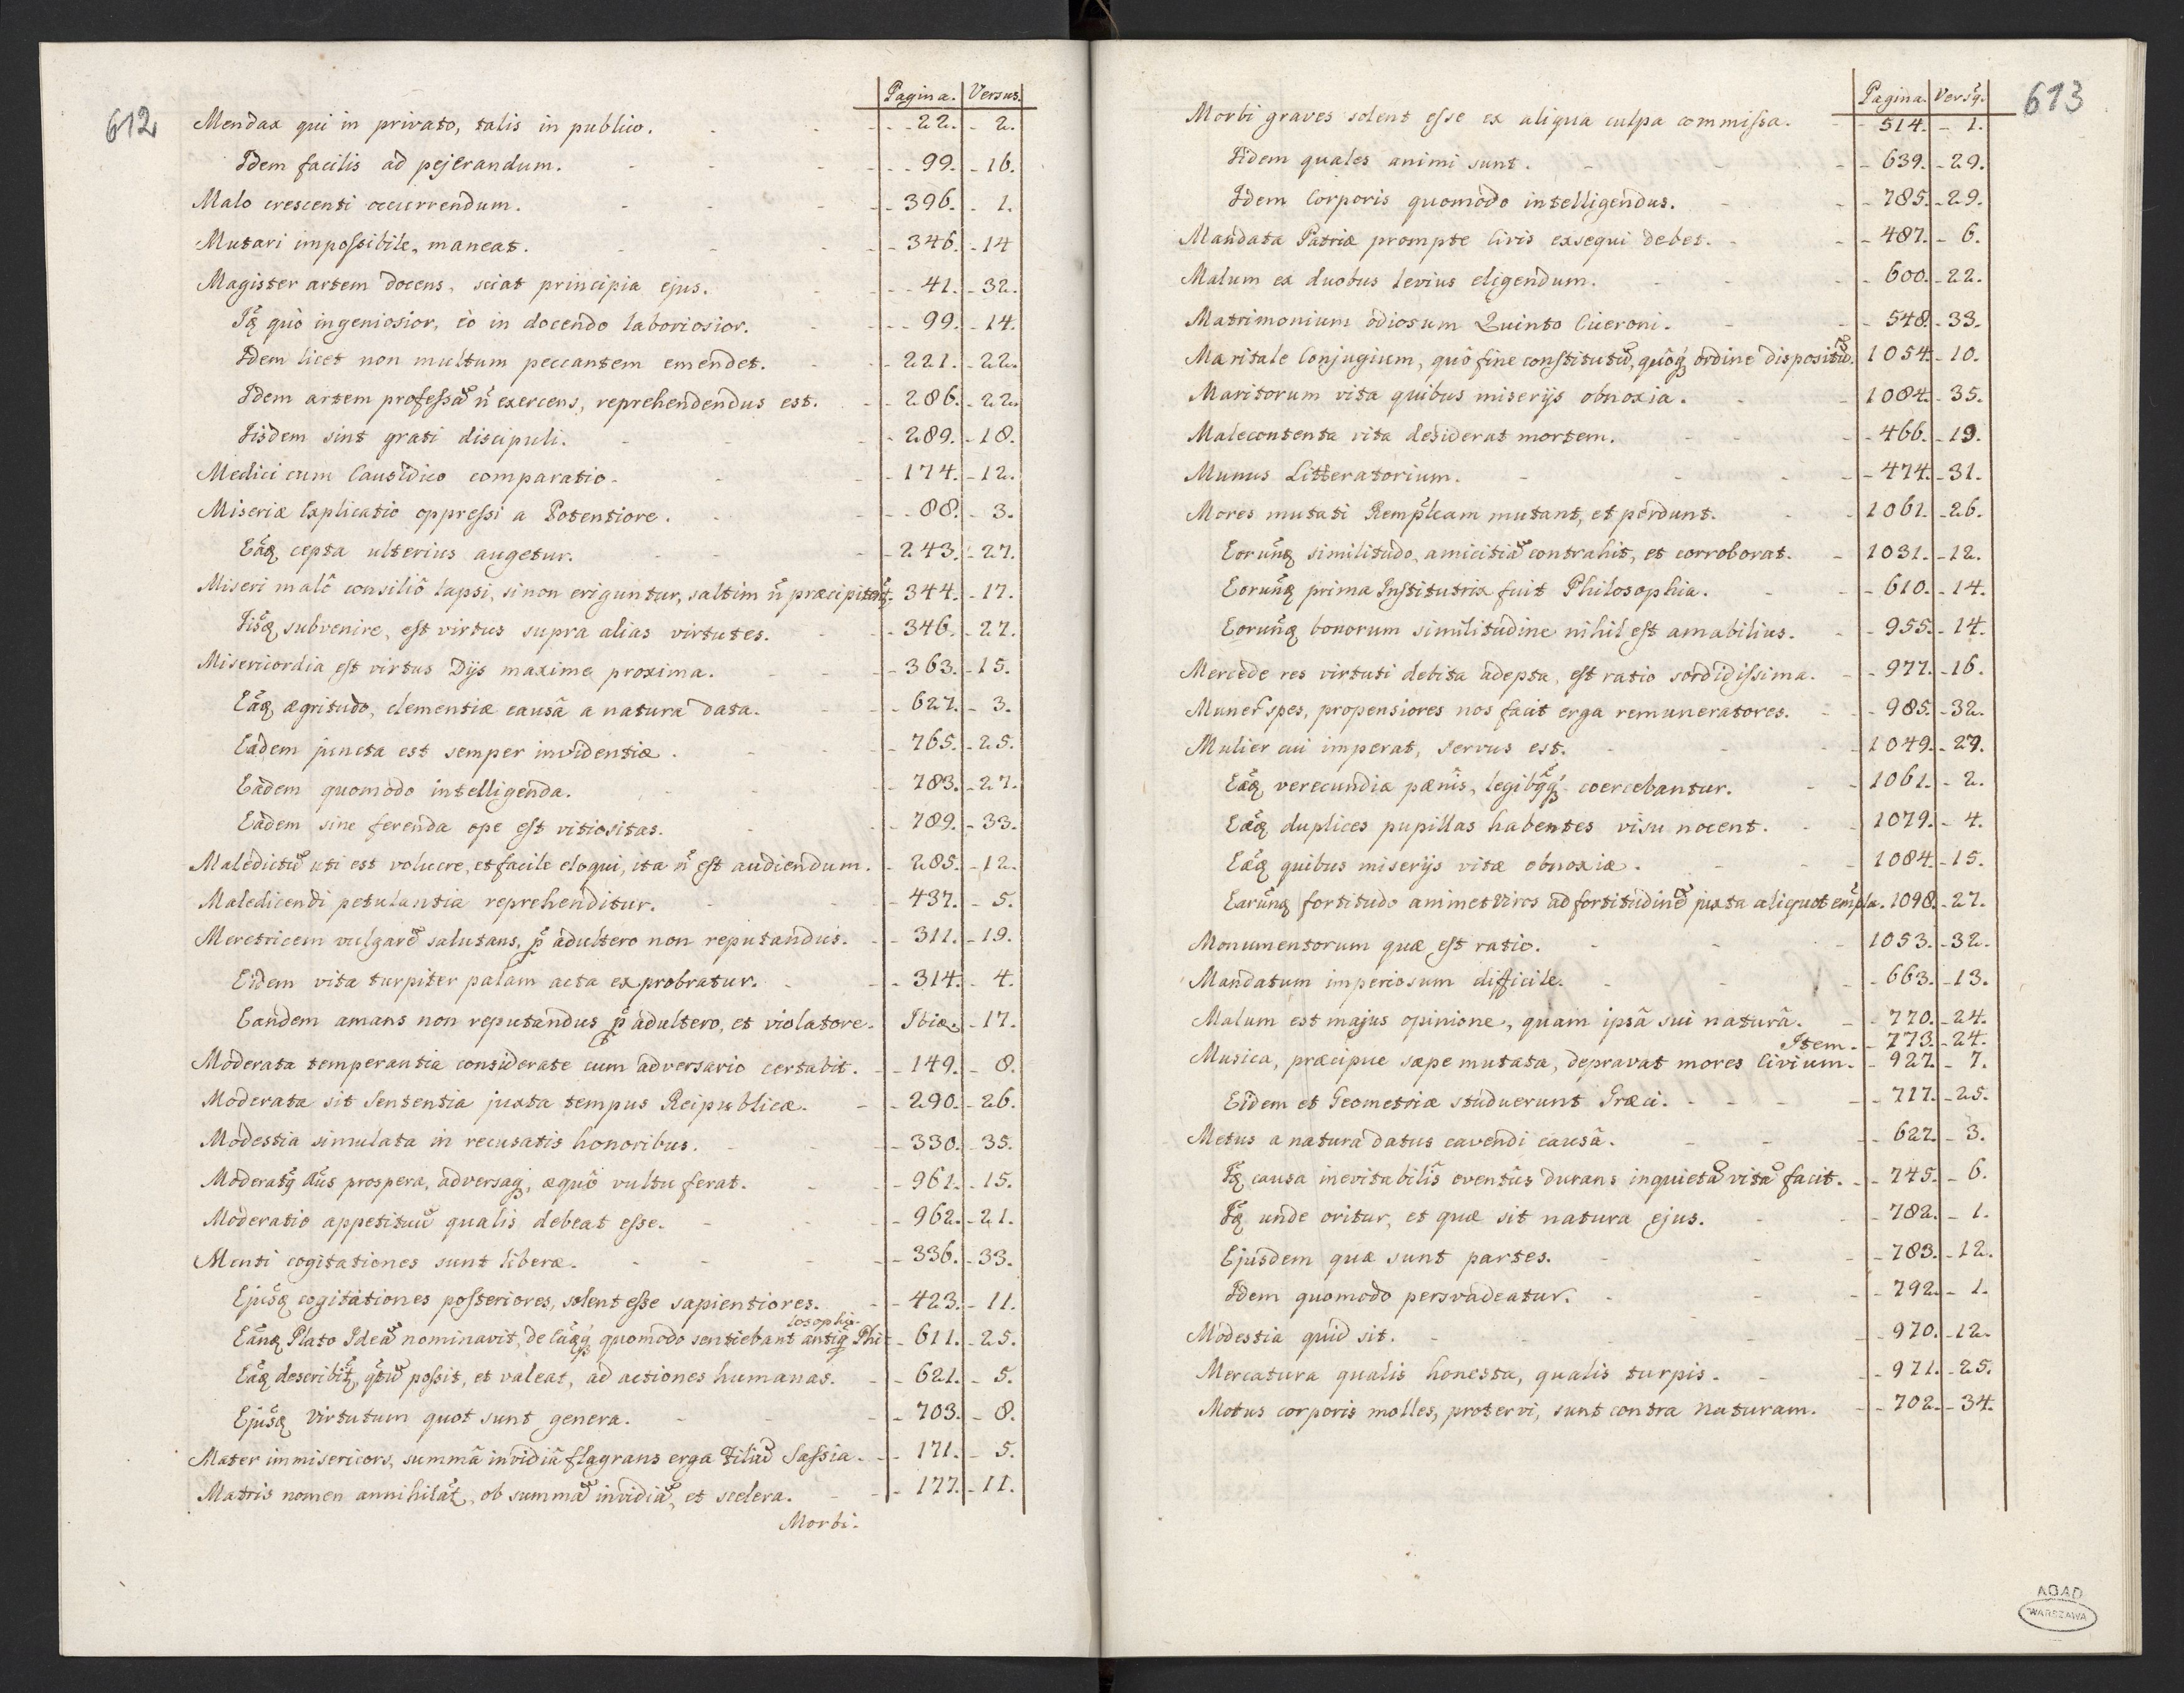 612
Pagina. Versus.
Mendax qui in privato, talis in publico. 22. 2.
Idem facilis ad pejerandum. 99. 16.
Malo crescenti occurrendum. 396. 1.
Mutari impossibile, maneat. 346. 14
Magister artem docens, sciat principia ejus. 41. 32.
quò ingeniosior, eò in docendo laboriosior. 99. 14.
Idem licet non multum peccantem emendet. 221. 22.
Idem artem professũ ñ exercens, reprehendendus est. 286. 22.
Iisdem sint grati discipuli. 289. 18.
Medici cum Causidico comparatio. 174. 12.
Miseriæ Explicatio oppressi a Potentiore. 88. 3.
Eãq cepta ulterius augetur. 243. 27.
Miseri malô consiliô lapsi, si non eriguntur, saltim ñ præcipitent. 344. 17.
Iisq subvenire, est virtus supra alias virtutes. 346. 27.
Misericordia est virtus Dijs maxime proxima. 363. 15.
Eãq ægritudo, clementiæ causâ a natura data. 627. 3.
Eadem juncta est semper invidentiæ. 765. 25.
Eadem quomodo intelligenda. 783. 27.
Eadem sine ferenda ope est vitiositas. 789. 33.
Maledictũ uti est volucre, et facile eloqui, ita ñ est audiendum. 285. 12.
Maledicendi petulantia reprehenditur. 437. 5.
Meretricem vulgarẽ salutans, p adultero non reputandus. 311. 19.
Eidem vita turpiter palam acta exprobratur. 314. 4.
Eandem amans non reputandus p adultero, et violatore. Ibid. 17.
Moderata temperantia considerate cum adversario certabit. 149. 8.
Moderata sit Sententia juxta tempus Reipublicæ. 290. 26.
Modestia simulata in recusatis honoribus. 330. 35.
Moderatq prospera, adversaq, æquô vultu ferat. 961. 15.
Moderatio appetituũ qualis debeat esse. 962. 21.
Menti cogitationes sunt liberæ. 336. 33.
Ejusq cogitationes posteriores, solent esse sapientiores. 423. 11.
losophi.
Eãnq Plato Ideã nominavit, de eãqq quomodo sentiebant antiq Phi- 611. 25.
Eãq describit, qtũ possit, et valeat, ad actiones humanas. 621. 5.
Ejusq Virtutum quot sunt genera. 703. 8.
Mater immisericors, summâ invidiâ flagrans erga Filiũ Sassia. 171. 5.
Matris nomen annihilat, ob summã invidiã, et scelera. 177. 11.
Morbi.
613
Pagina. Versq.
Morbi graves solent esse ex aliqua culpa commissa. 514. 1.
Iidem quales animi sunt. 639. 29.
Idem Corporis quomodo intelligendus. 785. 29.
Mandata Patriæ prompte Civis exsequi debet. 487. 6.
Malum ex duobus levius eligendum. 600. 22.
Matrimonium odiosum Quinto Ciceroni. 548. 33.
Maritale Conjugium, quô fine constitutũ, quôq ordine dispositũ. 1054. 10.
Maritorum vita quibus miserijs obnoxia. 1084. 35.
Malecontenta vita desiderat mortem. 466. 19.
Munus Litteratorium. 474. 31.
Mores mutati Remplicam mutant, et perdunt. 1061. 26.
Eorunq similitudo, amicitiã contrahit, et corroborat. 1031. 12.
Eorunq prima Institutrix fuit Philosophia. 610. 14.
Eorunq bonorum similitudine nihil est amabilius. 955. 14.
Mercede res virtuti debita adepta, est ratio sordidissima. 977. 16.
Muner spes, propensiores nos facit erga remuneratores. 985. 32.
Mulier cui imperat, servus est. 1049. 27.
Eãq verecundia pænis, legibqq coercebantur. 1061. 2.
Eãq duplices pupillas habentes visu nocent. 1079. 4.
Eãq quibus miserijs vitæ obnoxiæ. 1084. 15.
Earunq fortitudo animet Viros ad fortitudinẽ juxta aliquot empla. 1098. 27.
Monumentorum quæ est ratio. 1053. 32.
Mandatum imperiosum difficile. 663. 13.
Malum est majus opinione, quam ipsâ sui naturâ. 770. 24.
Item. 773. 24.
Musica, præcipue sæpe mutata, depravat mores Civium. 927. 7.
Eidem et Geometriæ studuerunt Græci. 717. 25.
Metus a natura datus cavendi causâ. 627. 3.
causa inevitabilis eventûs durans inquietã vitã facit. 745. 6.
unde oritur, et quæ sit natura ejus. 782. 1.
Ejusdem quæ sunt partes. 783. 12.
Idem quomodo persvadeatur. 792. 1.
Modestia quid sit. 970. 12.
Mercatura qualis honesta, qualis turpis. 971. 25.
Motus corporis molles, protervi, sunt contra Naturam. 702. 34.
AGAD
WARSZAWA